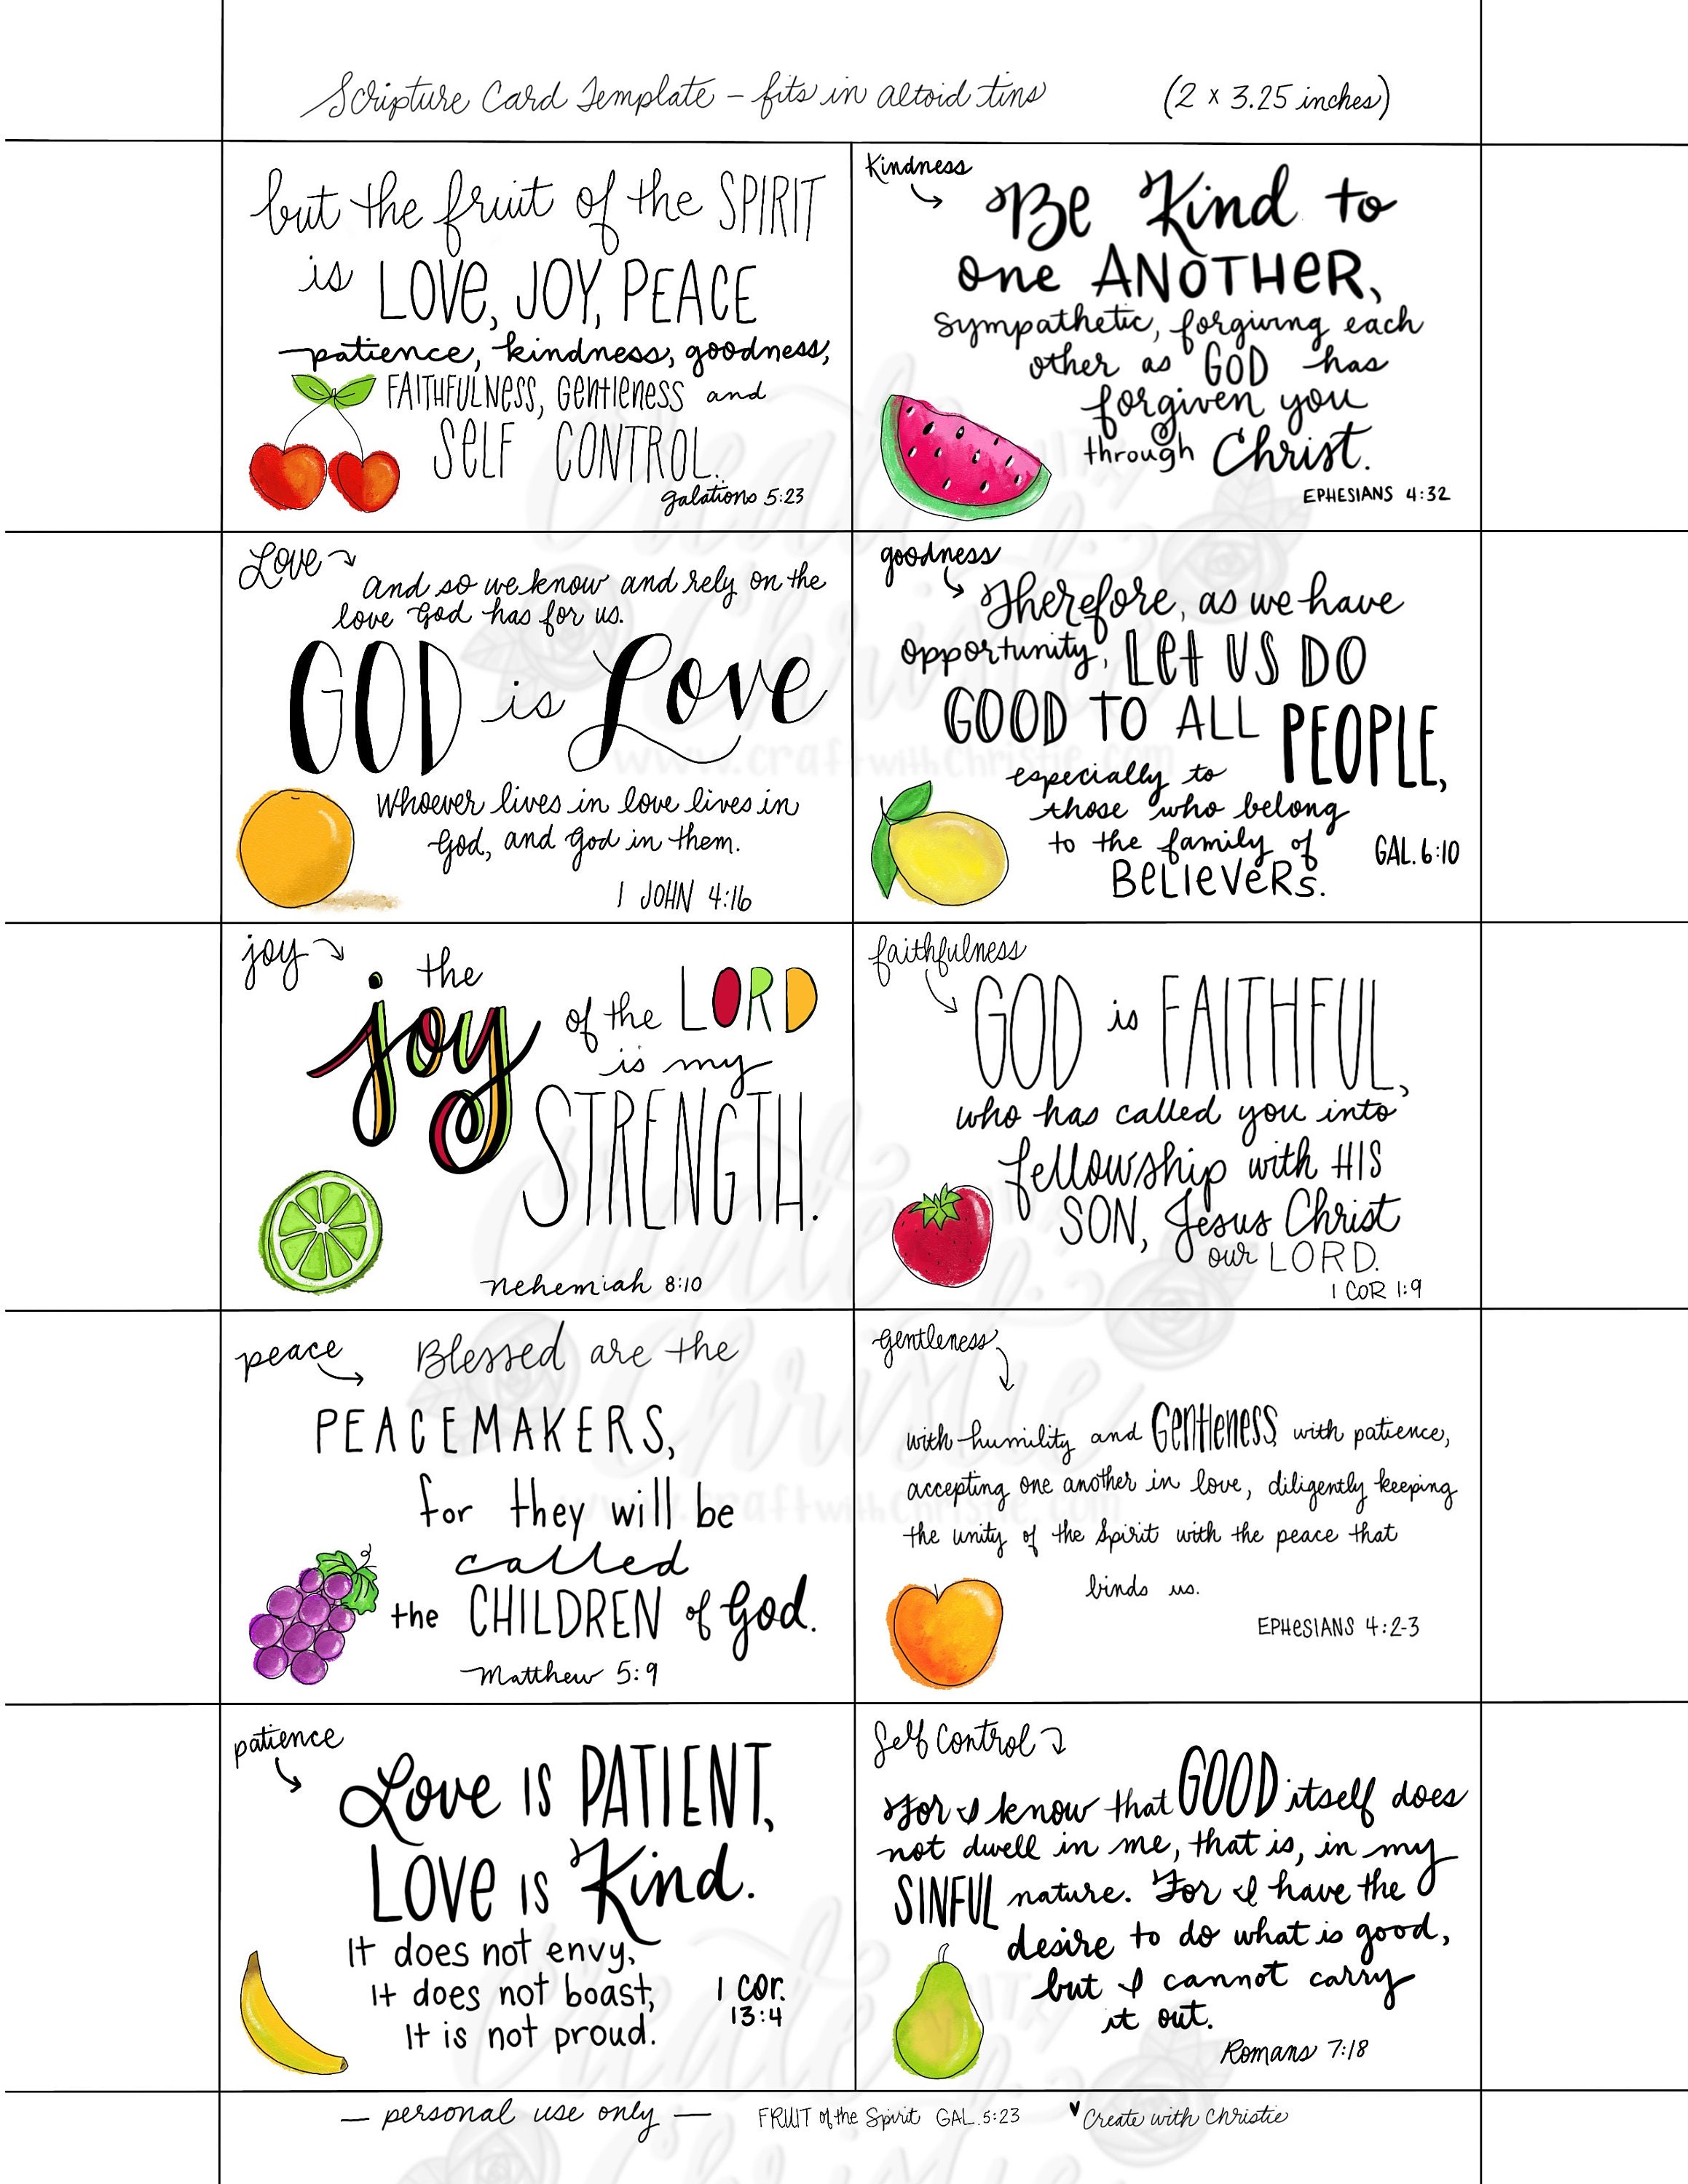 Scripture Card Template – fits in altoid tins (2 x 3.25 inches)
but the fruit of the SPIRIT
is LOVE, JOY, PEACE
patience, kindness, goodness,
FAITHFULNESS, GENTLENESS and
SELF CONTROL.
galations 5:23
Kindness
Be Kind to
one ANOTHER,
sympathetic, forgiving each
other as GOD has
forgiven you
through Christ.
EPHESIANS 4:32
Love
and so we know and rely on the
love God has for us.
GOD is Love
Whoever lives in love lives in
God, and God in them.
1 JOHN 4:16
goodness
Therefore, as we have
opportunity, LET US DO
GOOD TO ALL PEOPLE,
especially to
those who belong
to the family of
BELIEVERS.
GAL. 6:10
joy
the
joy of the LORD
is my
STRENGTH.
Nehemiah 8:10
faithfulness
GOD is FAITHFUL,
who has called you into
fellowship with HIS
SON, Jesus Christ
our LORD.
1 COR 1:9
peace
Blessed are the
PEACEMAKERS,
for they will be
called
the CHILDREN of God.
Matthew 5:9
gentleness
with humility and GENTLENESS with patience,
accepting one another in love, diligently keeping
the unity of the Spirit with the peace that
binds us.
EPHESIANS 4:2-3
patience
Love IS PATIENT,
LOVE IS Kind.
It does not envy,
It does not boast,
It is not proud.
1 COR.
13:4
Self Control
For I know that GOOD itself does
not dwell in me, that is, in my
SINFUL nature. For I have the
desire to do what is good,
but I cannot carry
it out.
Romans 7:18
— personal use only — FRUIT of the Spirit GAL. 5:23 ♥ Create with Christie
Create
with
Christie
www.craftwithchristie.com
Create
with
Christie
www.craftwithchristie.com
Create
with
Christie